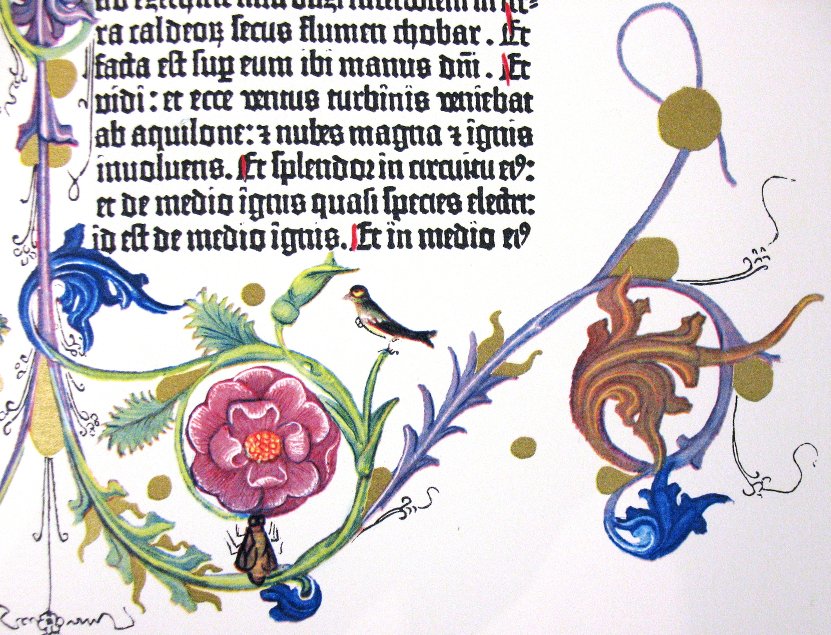 ra caldeoꝝ secus flumen chobar . Et
facta est sup eum ibi manus dñi . Et
vidi : et ecce ventus turbinis veniebat
ab aquilone : ⁊ nubes magna ⁊ ignis
involuens. Et splendor in circuitu eiꝰ:
et de medio ignis quasi species electri:
id est de medio ignis. Et in medio eiꝰ